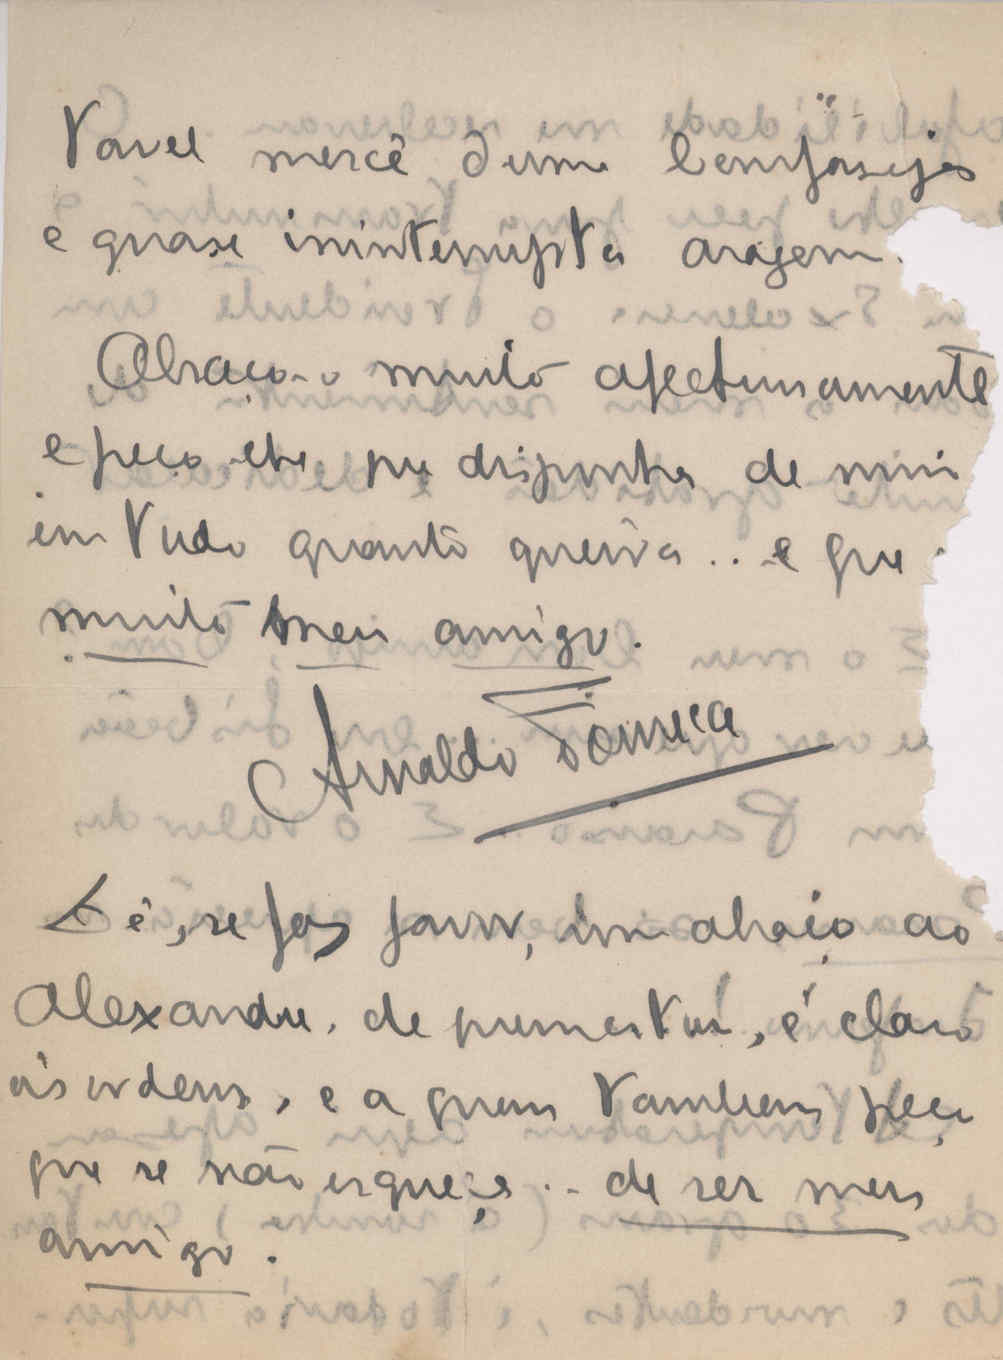 tavel mercê d'uma bemfaseja
e quase ininterrupta aragem.
Abraço-o muito afectuosamente
e peço-lhe que disponha de mim
em tudo quanto queira.. e que
muito meu amigo.
Arnaldo Fonseca
Dê, se faz favor, um abraço ao
Alexandre, de quem estou, é claro
ás ordens, e a quem tambem peço
que se não esqueça.. de ser meu
amigo.